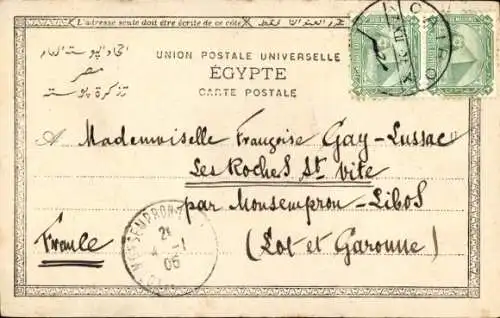 L'adresse seule doit être écrite de ce côté
UNION POSTALE UNIVERSELLE
اتحاد البوسته العام
ÉGYPTE
مصر
CARTE POSTALE
تذكرة بوسته
CAIRO
A Mademoiselle Françoise Gay-Lussac
Les Roches St Vite
par Monsempron-Libos
France
(Lot et Garonne)
MONSEMPRON
06